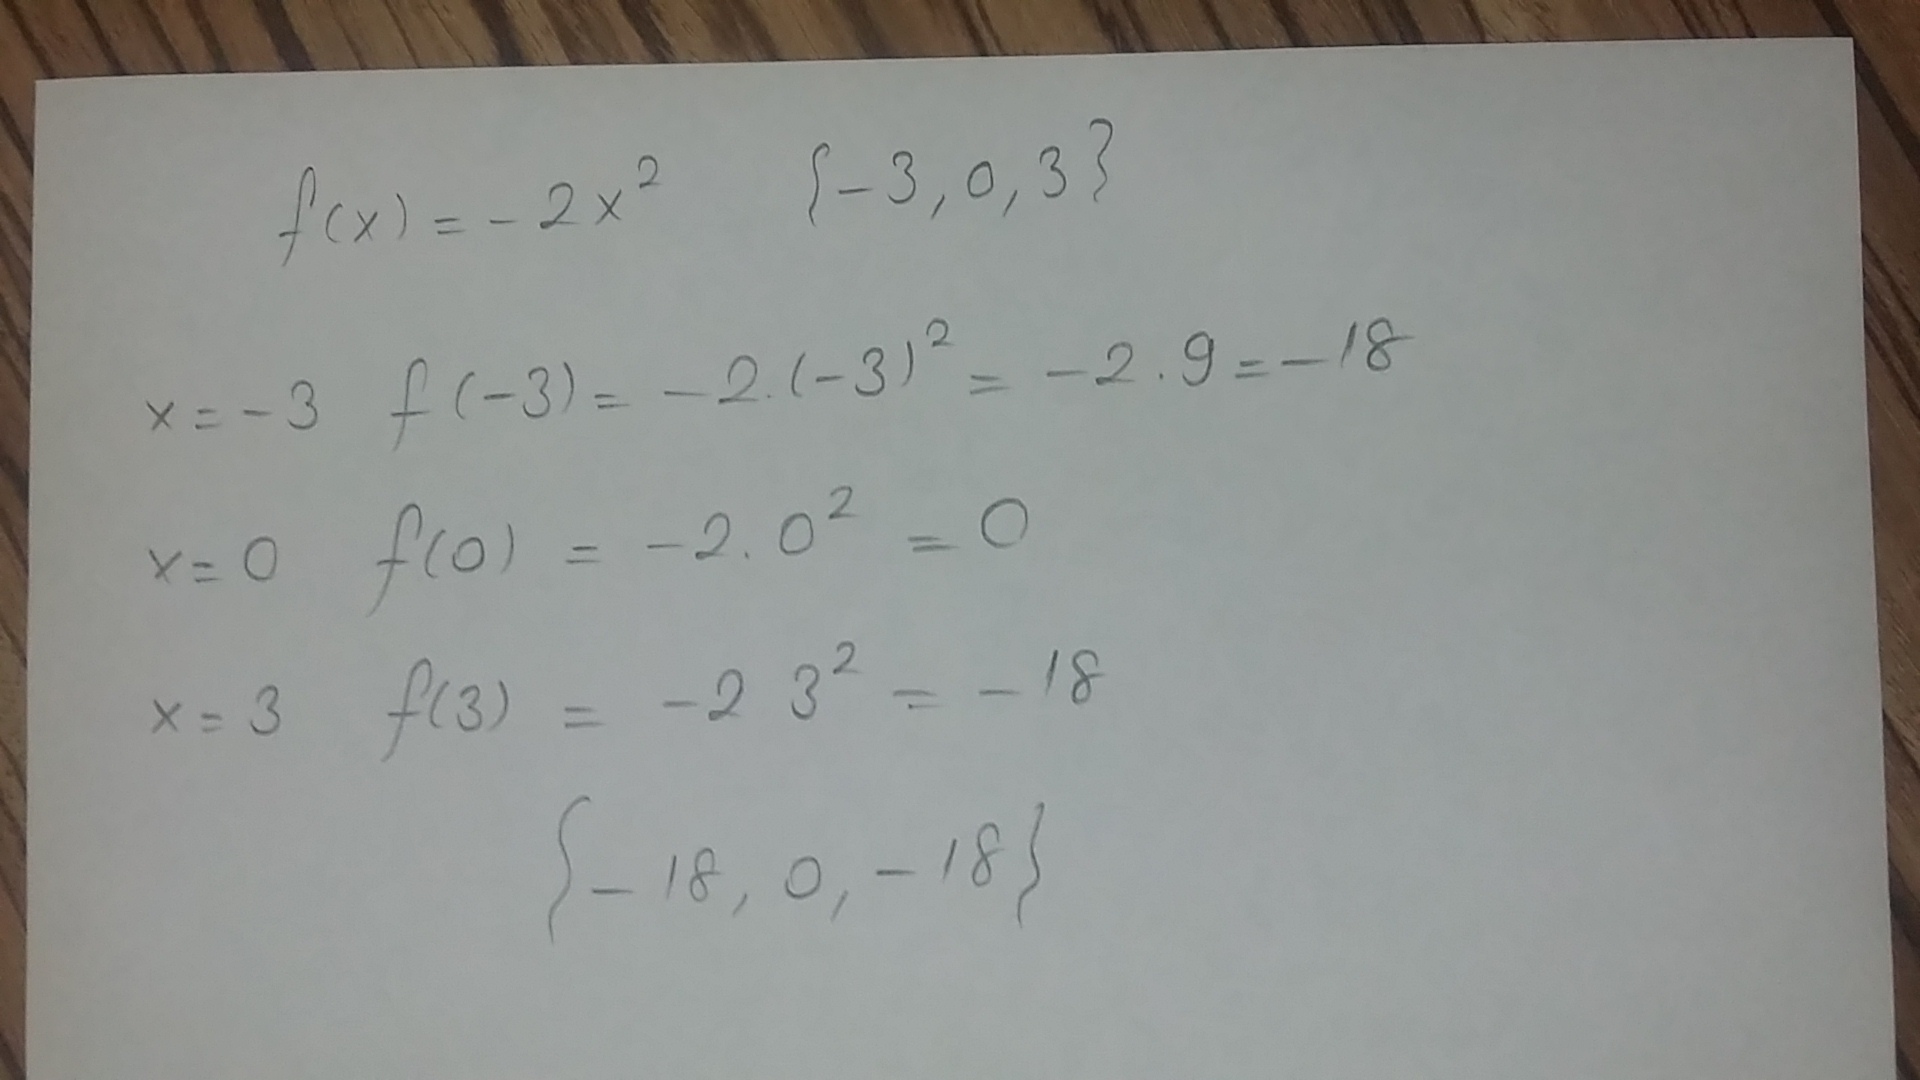 f(x) = -2x² {-3, 0, 3}
x = -3 f(-3) = -2.(-3)² = -2.9 = -18
x = 0 f(0) = -2.0² = 0
x = 3 f(3) = -2 3² = -18
{-18, 0, -18}